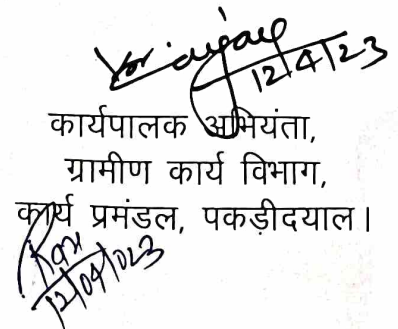 12/4/23
कार्यपालक अभियंता,
ग्रामीण कार्य विभाग,
कार्य प्रमंडल, पकड़ीदयाल।
12/04/023